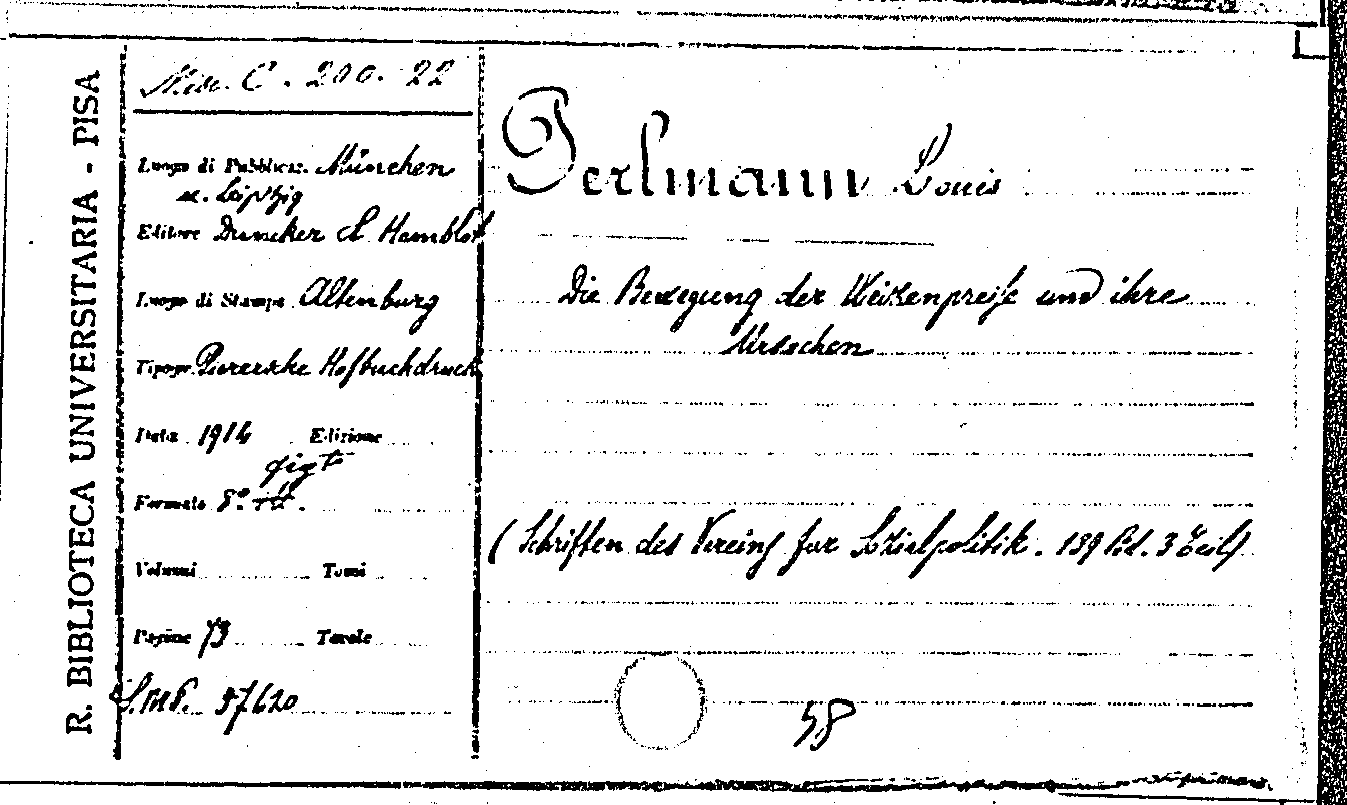 R. BIBLIOTECA UNIVERSITARIA - PISA
Misc. C. 200. 22
Luogo di Pubblicaz. München
u. Leipzig
Editore Duncker & Humblot
Luogo di Stampa Altenburg
Tipogr. Pierersche Hofbuchdruck
Data 1914 Edizione
Formato 8º.
Volumi Tomi
Pagine 73 Tavole
57620
Perlmann Louis
Die Bewegung der Weizenpreise und ihre
Ursachen
(Schriften des Vereins für Sozialpolitik. 139 Bd. 3 Teil)
58